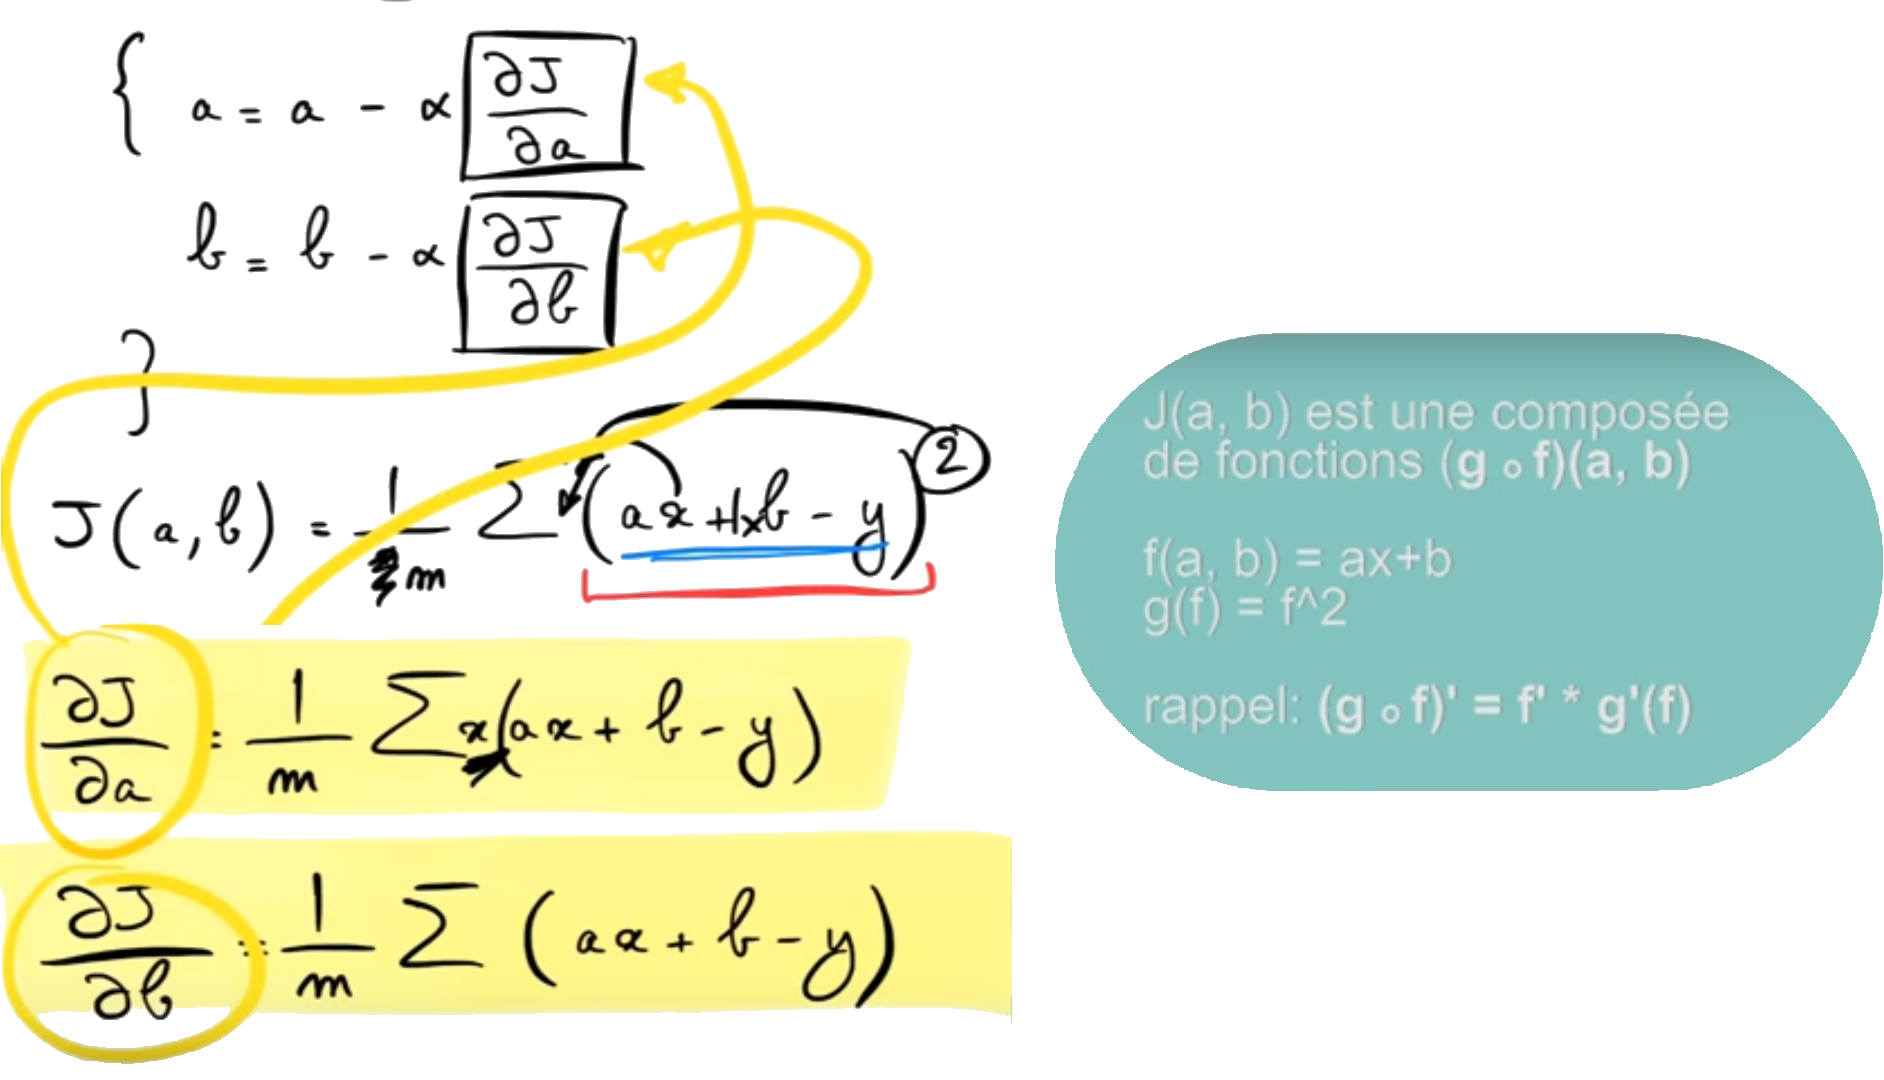 { a = a - α ∂J/∂a
b = b - α ∂J/∂b
}
J(a,b) = 1/m Σ (ax + 1xb - y)²
∂J/∂a = 1/m Σ x(ax + b - y)
∂J/∂b = 1/m Σ (ax + b - y)
J(a, b) est une composée
de fonctions (g ∘ f)(a, b)
f(a, b) = ax+b
g(f) = f^2
rappel: (g ∘ f)' = f' * g'(f)